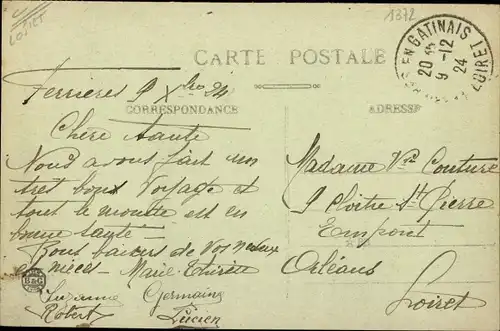 LOIRET
1372
EN GATINAIS
20
9-12
24
LOIRET
CARTE POSTALE
Ferrieres 9 Xbre 24
CORRESPONDANCE
ADRESSE
Chère tante
Nous avons fait un
tres bon Voyage et
tout le monde est en
bonne santé
Bons baisers de Vos neveux
et nieces Marie Thérèse
B&G
Suzanne Germaine
Robert Lucien
Madame Vve Couture
9 Cloitre St Pierre
Empont
Orléans
Loiret